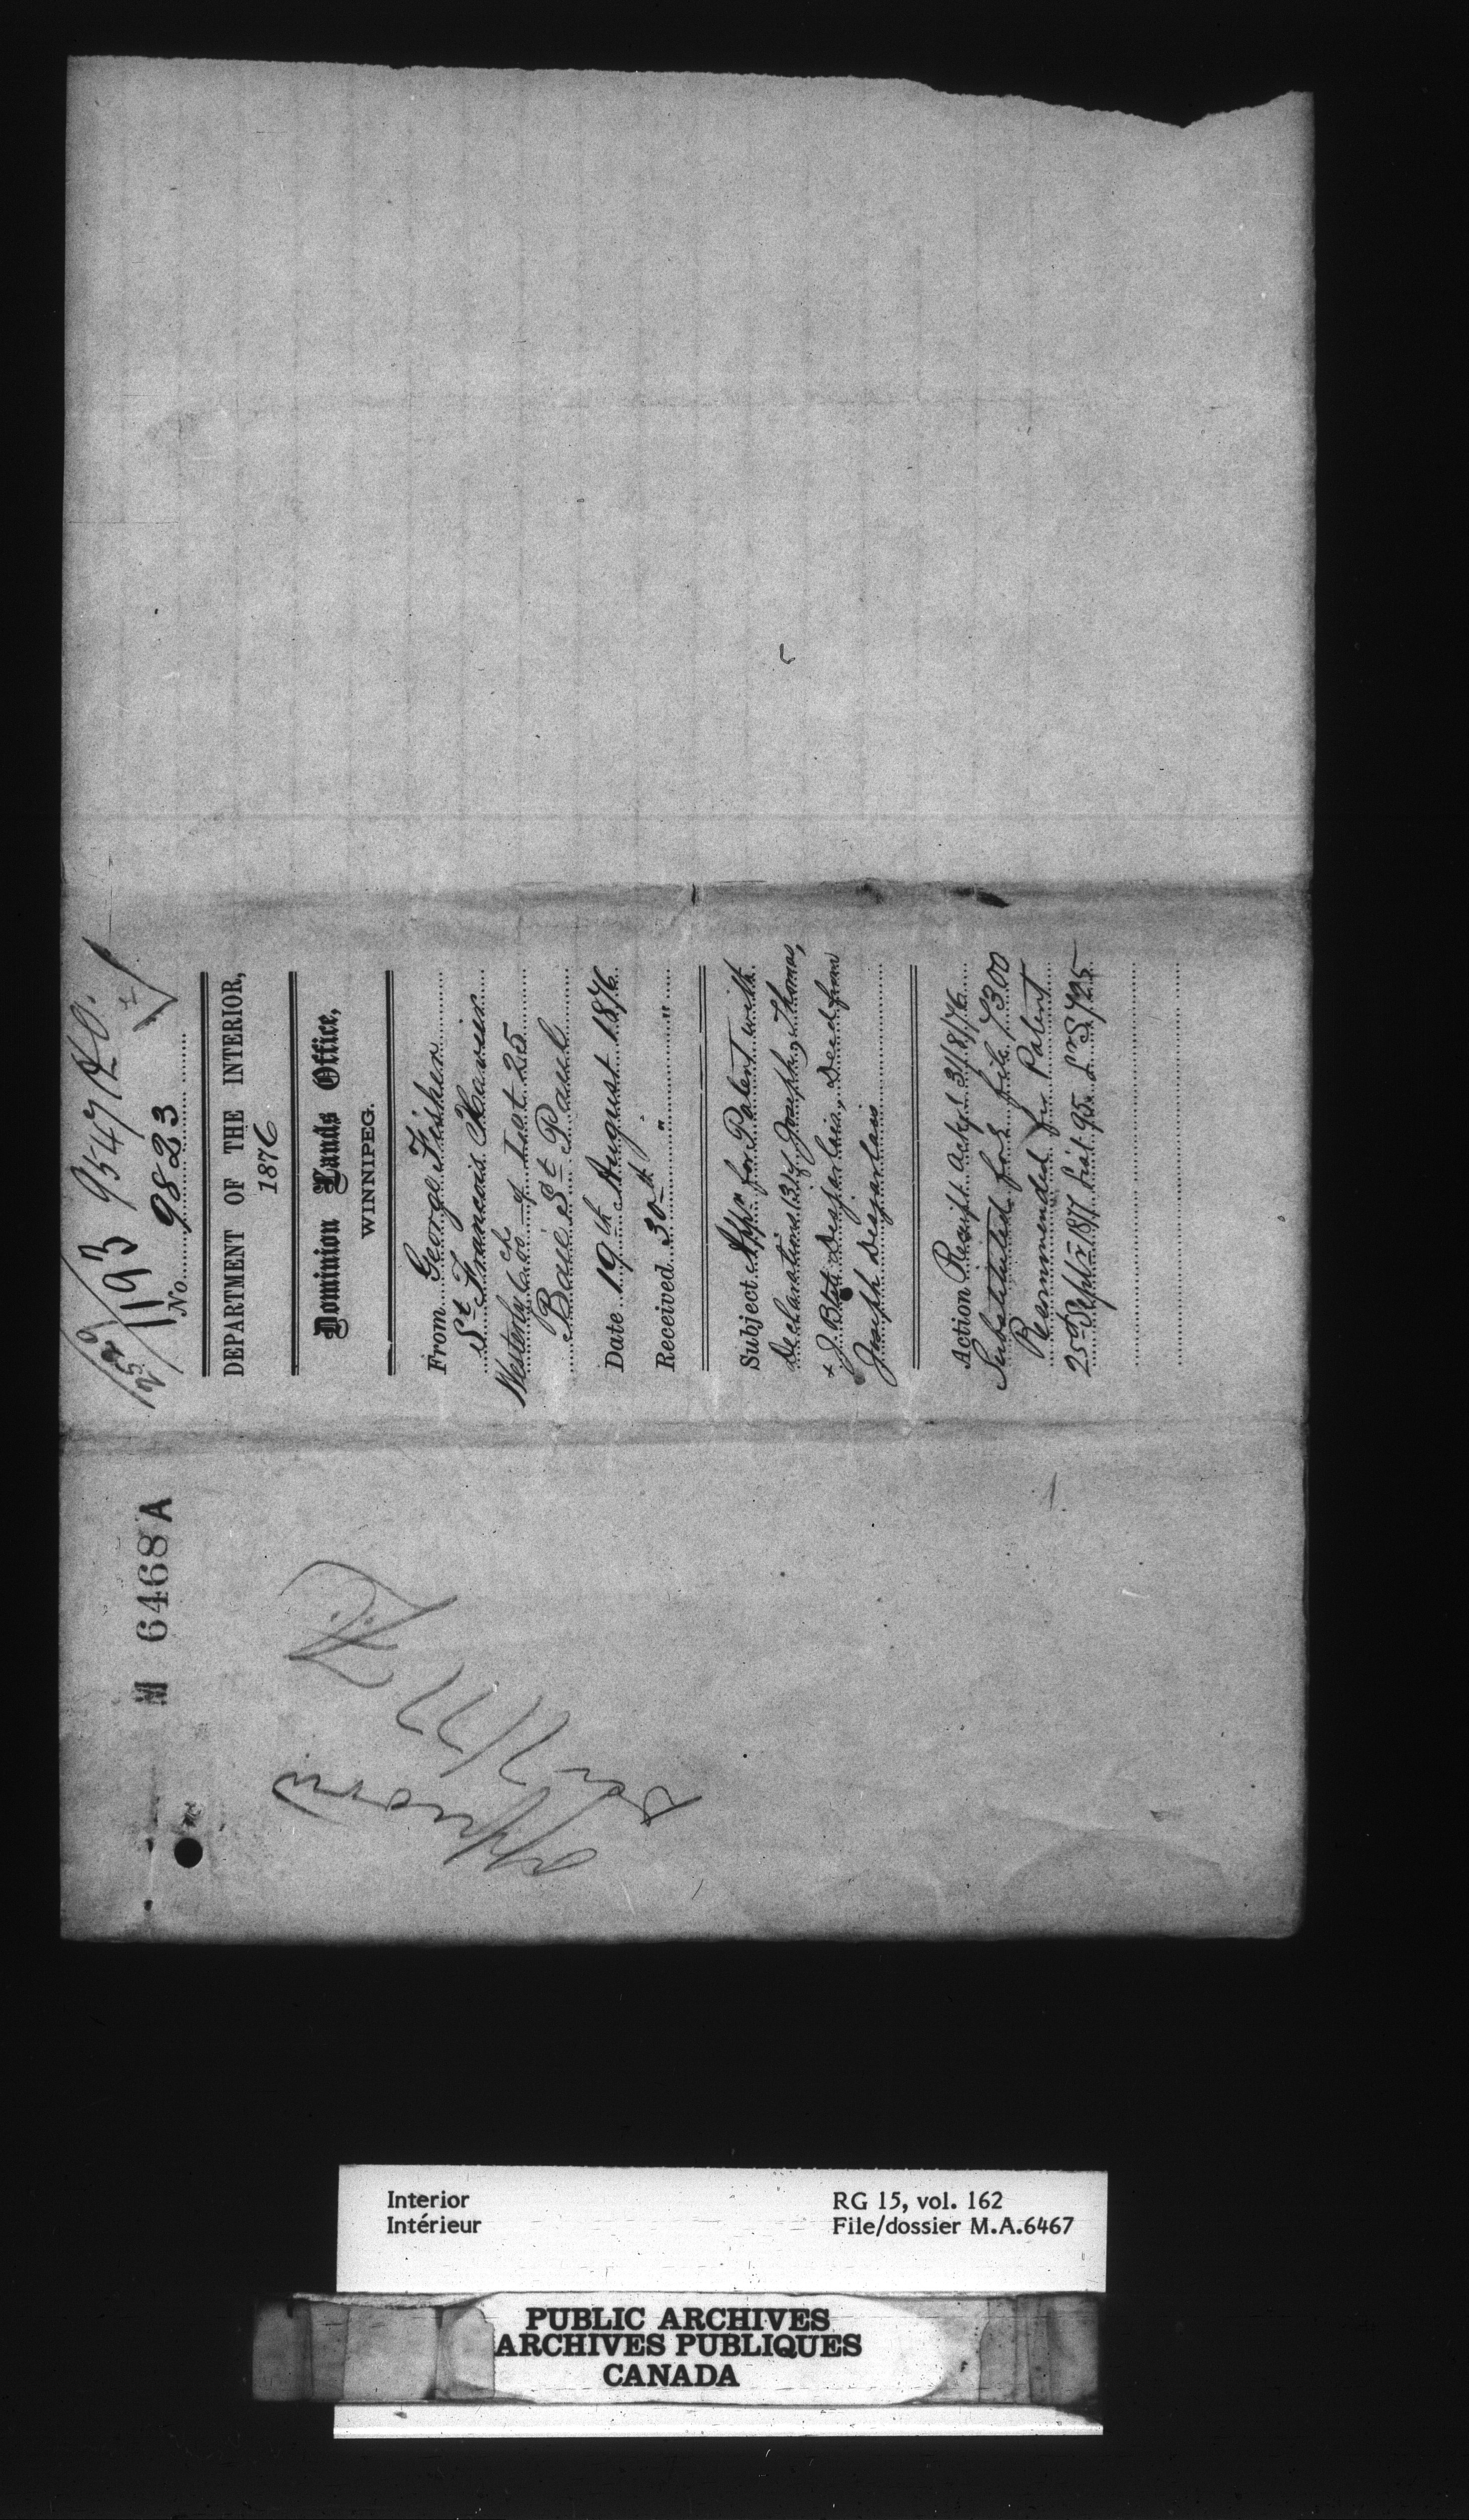 193 9547 H.O.
No. 9823
DEPARTMENT OF THE INTERIOR,
1876
Dominion Lands Office,
WINNIPEG.
From George Fisher
St Francois Xavier
Westerly 6 chs of Lot 25
Baie St Paul
Date 19th August 1876
Received 30th " "
Subject Appn for Patent with
Declarations (3) of Joseph, Thomas,
& J. Bte Desjarlais, Deed from
Joseph Desjarlais
Action Receipt ackd 31/8/76
Substituted for file 7300
Recommended for Patent
25th Septr 1877 List 95
M 6468 A
approved
Interior
Intérieur
RG 15, vol. 162
File/dossier M.A.6467
PUBLIC ARCHIVES
ARCHIVES PUBLIQUES
CANADA